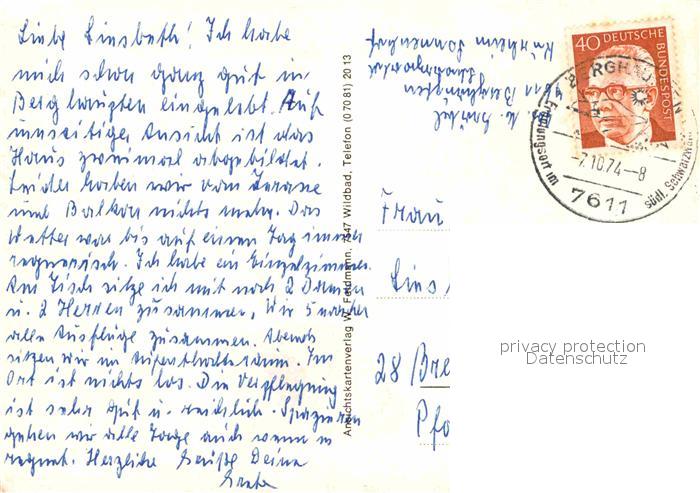 Liebe Liesbeth! Ich habe
mich schon ganz gut in
Berghaupten eingelebt. Auf
umseitiger Ansicht ist das
Haus zweimal abgebildet.
Leider haben wir vom Terasse
und Balkon nichts mehr. Das
Wetter war bis auf einen Tag immer
regnerisch. Ich habe ein Einzelzimmer.
Am Tisch sitze ich mit noch 2 Damen
u. 2 Herren zusammen, Wir 5 machen
alle Ausflüge zusammen. Abends
sitzen wir im Aufenthaltsraum. Im
Ort ist nichts los. Die Verpflegung
ist sehr gut u. reichlich. Spazieren
gehen wir alle Tage auch wenn es
regnet. Herzliche Grüße Deine
Grete
Ansichtskartenverlag W. Feldmann, 7547 Wildbad, Telefon (0 70 81) 20 13
Berghaupten
Kurheim Sonnenhof
40 DEUTSCHE
BUNDESPOST
BERGHAUPTEN
-7.10.74-8
7611
Erholungsort im
südl. Schwarzwald
Frau
Lies
28 Bre
Pfa
privacy protection
Datenschutz